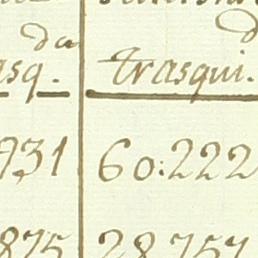 da
asq. trasqui.
931 60:222
875 28.757